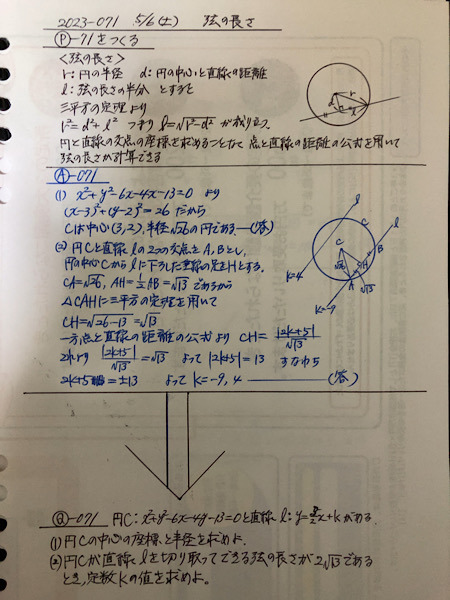 2023-071 5/6(土) 弦の長さ
Ⓟ-71をつくる
<弦の長さ>
r:円の半径 d:円の中心と直線の距離
l:弦の長さの半分 とすると
三平方の定理より
r²=d²+l² つまり l=√r²-d² が成り立つ。
円と直線の交点の座標を求めることなく 点と直線の距離の公式を用いて
弦の長さが計算できる
r
d
l
Ⓐ-071
(1) x²+y²-6x-4x-13=0 より
(x-3)²+(y-2)²=26 だから
Cは中心(3,2),半径√26の円である—(答)
(2) 円Cと直線lの2つの交点をA,Bとし、
円の中心Cからlに下ろした垂線の足をHとする。
CA=√26, AH=½AB=√13 であるから
△CAHに三平方の定理を用いて
CH=√26-13=√13
一方点と直線の距離の公式より CH=|2k+5|/√13
これより |2k+5|/√13=√13 よって |2k+5|=13 すなわち
2k+5=±13 よって k=-9,4 ——(答)
l
C
l
C
B
k=4
√26
H
A
√13
k=-9
Ⓠ-071 円C:x²+y²-6x-4y-13=0と直線l:y=3/2x+kがある.
(1)円Cの中心の座標と半径を求めよ.
(2)円Cが直線lを切り取ってできる弦の長さが2√13である
とき,定数kの値を求めよ。